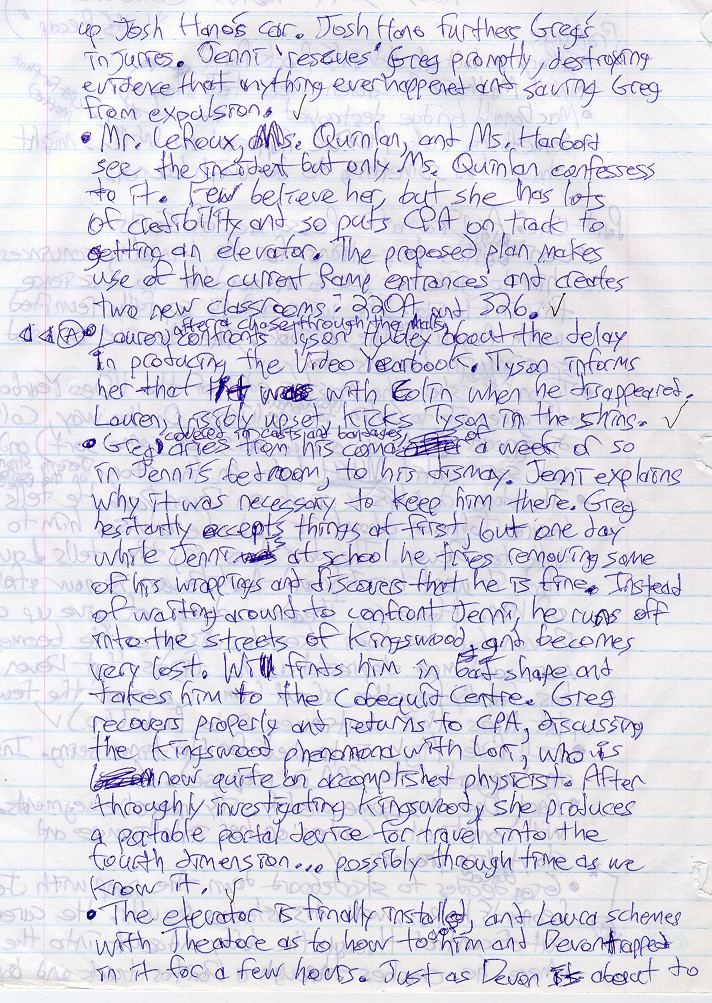 up Josh Hano's car. Josh Hano furthers Greg's
injuries. Jenni 'rescues' Greg promptly, destroying
evidence that anything ever happened and saving Greg
from expulsion. ✓
• Mr. LeRoux, Ms. Quinlan, and Ms. Harbord
see the incident but only Ms. Quinlan confessess
to it. Few believe her, but she has lots
of credibility and so puts CPA on track to
getting an elevator. The proposed plan makes
use of the current Ramp entrances and creates
two new classrooms: 220A and 326. ✓
A • Lauren, after a chase through the malls, confronts Tyson Hubley about the delay
in producing the Video Yearbook. Tyson informs
her that it was with Colin when he disappeared.
Lauren, visibly upset, kicks Tyson in the shins. ✓
• Greg, covered in casts and bandages, aries from his coma of a week or so
in Jenni's bedroom, to his dismay. Jenni explains
why it was necessary to keep him there. Greg
hesitantly accepts things at first, but one day
while Jenni at school he tries removing some
of his wrappings and discovers that he is fine. Instead
of waiting around to confront Jenni, he runs off
into the streets of Kingswood and becomes
very lost. Will finds him in bad shape and
takes him to the Cobequid Centre. Greg
recovers properly and returns to CPA, discussing
the Kingswood phenomona with Lori, who is
now quite an accomplished physicist. After
throughly investigating Kingswood, she produces
a portable portal device for travel into the
fourth dimension... possibly through time as we
know it. ✓
• The elevator is finally installed, and Laura schemes
with Theadore as to how to get him and Devon trapped
in it for a few hours. Just as Devon is about to